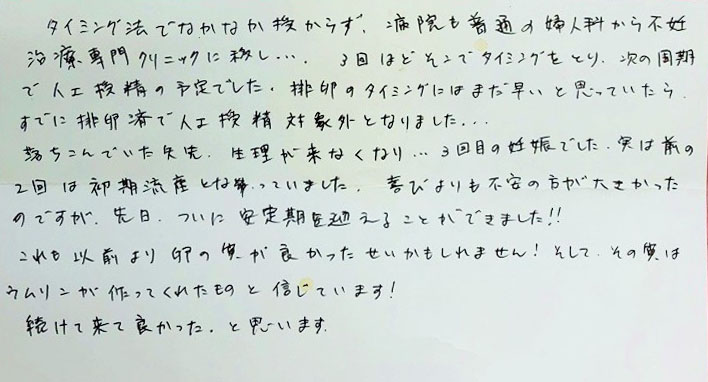 タイミング法でなかなか授からず、病院も普通の婦人科から不妊
治療専門クリニックに移し…、3回ほどそこでタイミングをとり、次の周期
で人工授精の予定でした。排卵のタイミングにはまだ早いと思っていたら、
すでに排卵済で人工授精対象外となりました…
落ちこんでいた矢先、生理が来なくなり…3回目の妊娠でした。実は前の
2回は初期流産となっていました。喜びよりも不安の方が大きかった
のですが、先日、ついに安定期を迎えることができました!!
これも以前より卵の質が良かったせいかもしれません!そして、その質は
ウムリンが作ってくれたものと信じています!
続けて来て良かった。と思います。